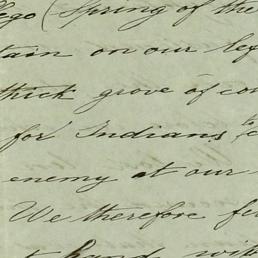 (Spring of the
tain on our lef
thick grove of co
for Indians to
enemy at our
We therefore fe
t hand wit